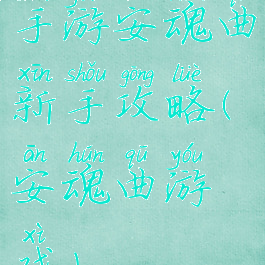 手游安魂曲
xīn shǒu gōng lüè
新手攻略(
ān hún qū yóu
安魂曲游
xì
戏)